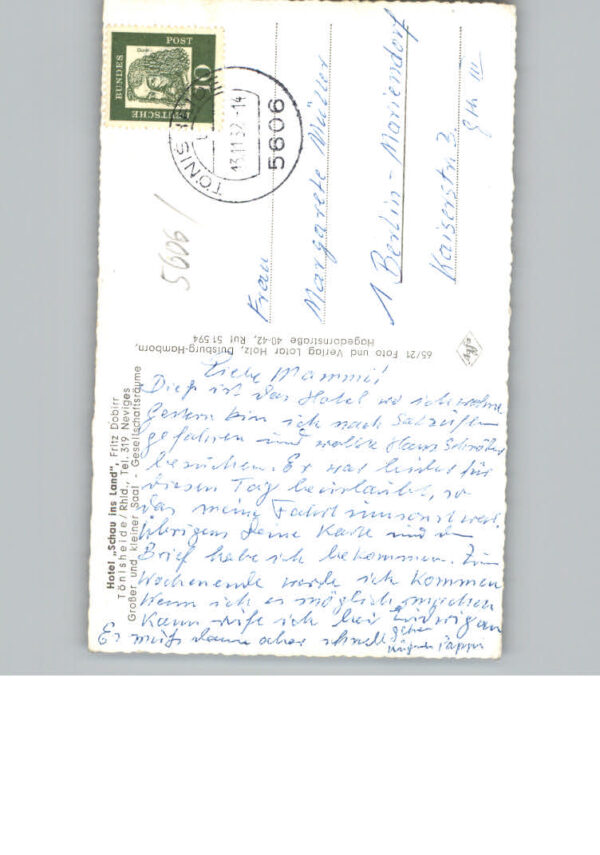 Hotel „Schau ins Land“, Fritz Dobirr
Tönisheide/Rhld., Tel. 319 Neviges
Großer und kleiner Saal - Gesellschaftsräume
Liebe Mammi!
Dies ist das Hotel wo ich wohne
Gestern bin ich nach Salzuflen
gefahren und wollte Hans Schröder
besuchen. Er war leider für
diesen Tag beurlaubt, so
das meine Fahrt umsonst war.
Übrigens Deine Karte und den
Brief habe ich bekommen. Zum
Wochenende werde ich kommen
Wenn ich es möglich machen
Kann rufe ich bei an
Es muß dann aber schnell gehen
65/21 Foto und Verlag Lotar Holz, Duisburg-Hamborn,
Hagedornstraße 40-42, Ruf 51 594
Agfa
DEUTSCHE
BUNDES
POST
10
TÖNIS
13.11.62.-14
5606
5606/
Frau
Margarete Müller
1 Berlin-Mariendorf
Kaiserstr 3
Gth III